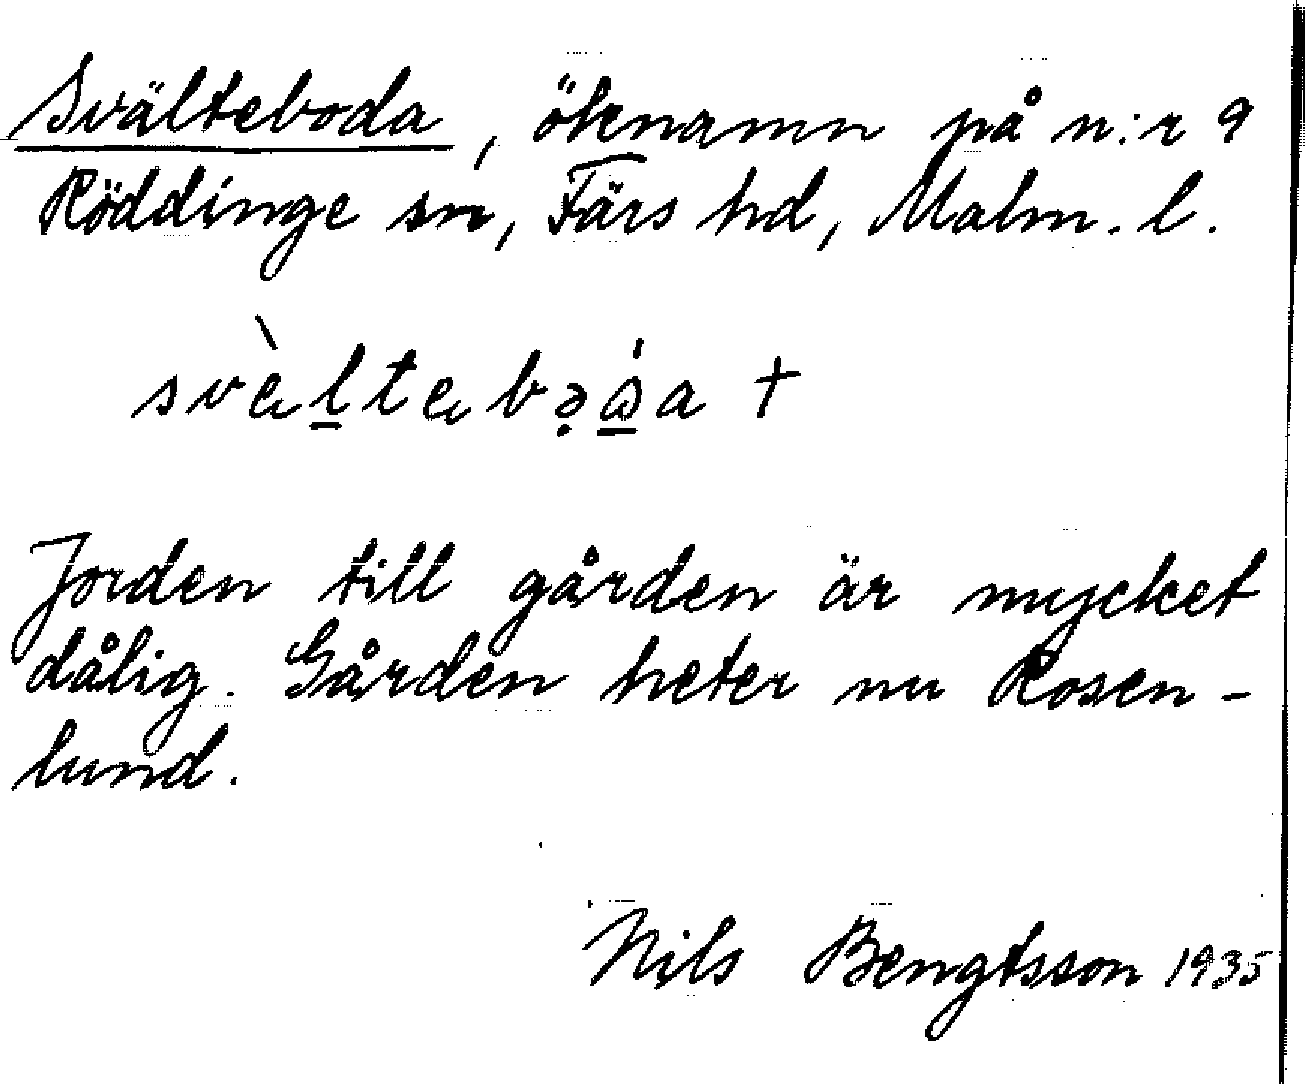 Svälteboda, öknamn på n:r 9
Röddinge sn, Färs hd, Malm. l.
Jorden till gården är mycket
dålig. Gården heter nu Rosen-
lund.
Nils Bengtsson 1935